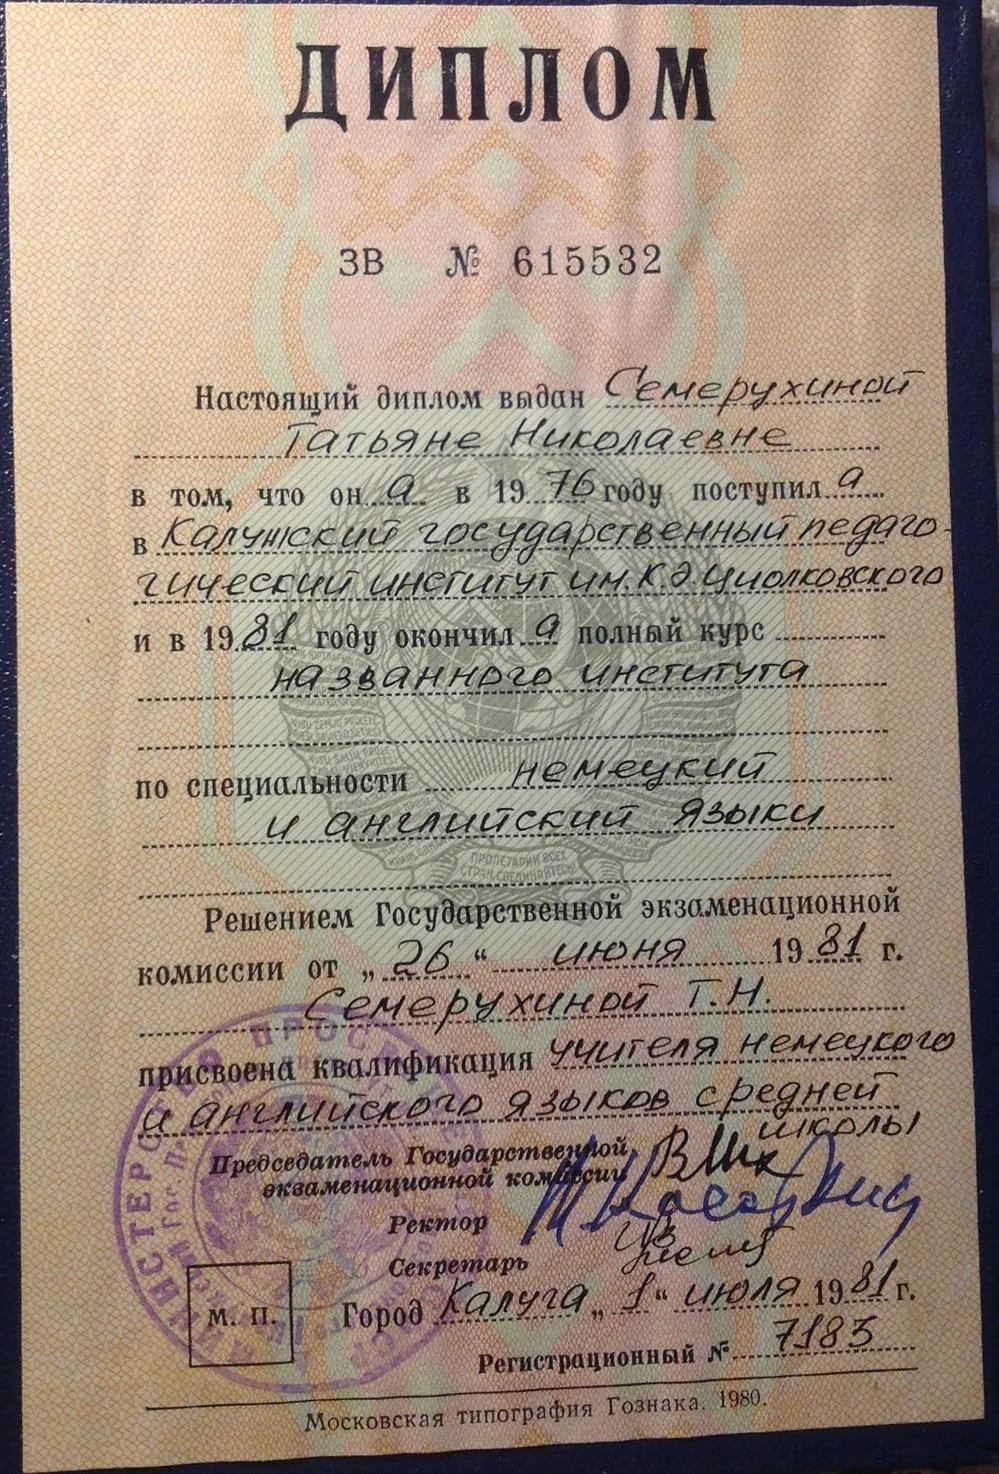 ДИПЛОМ
ЗВ № 615532
Настоящий диплом выдан Семерухиной
Татьяне Николаевне
в том, что он а в 19 76 году поступил а
в Калужский государственный педаго-
гический институт им. К.Э. Циолковского
и в 19 81 году окончил а полный курс
названного института
по специальности немецкий
и английский языки
ПРОЛЕТАРИИ ВСЕХ
СТРАН, СОЕДИНЯЙТЕСЬ!
Решением Государственной экзаменационной
комиссии от „ 26 “ июня 19 81 г.
Семерухиной Т.Н.
присвоена квалификация учителя немецкого
и английского языков средней
школы
Председатель Государственной
экзаменационной комиссии
Ректор
Секретарь
Город Калуга „ 1 “ июля 19 81 г.
М. П.
Регистрационный № 7183
Московская типография Гознака. 1980.